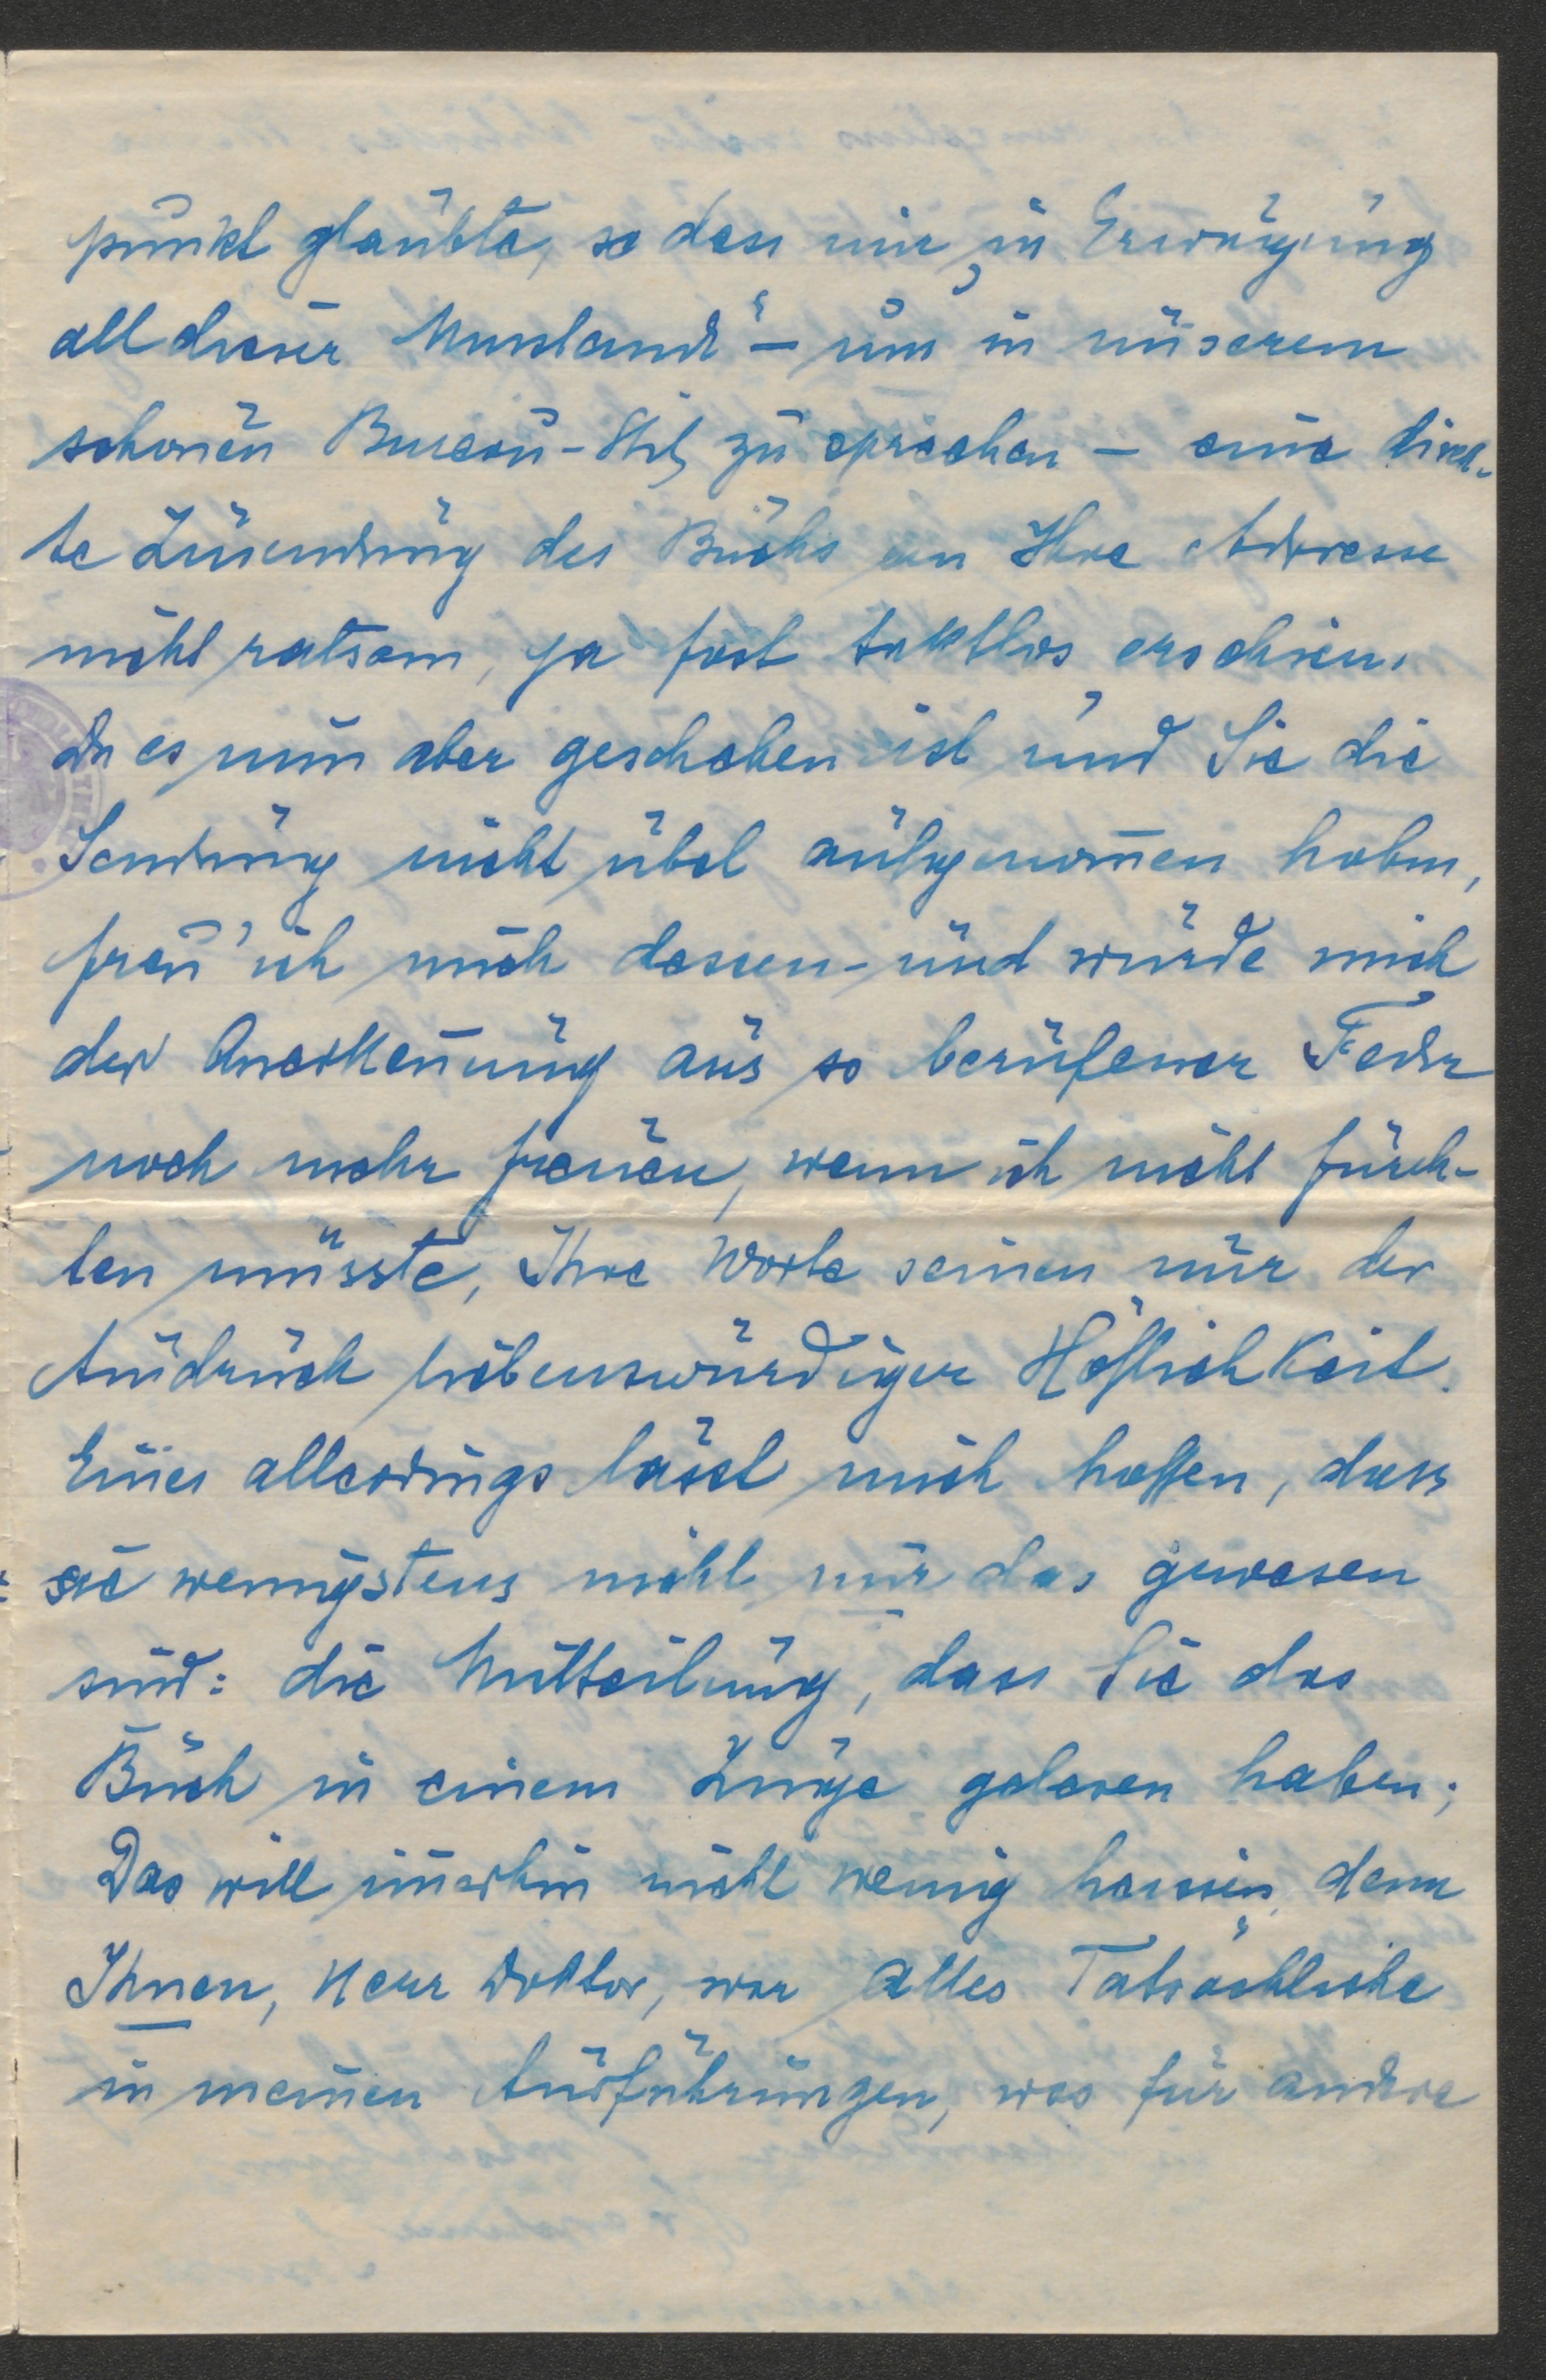 punkt glaubte, so dass mir „in Erwägung
all dieser Umstände“ – um in unserem
schönen Bureau-Stil zu sprechen – eine direk-
te Zusendung des Buchs an Ihre Adresse
nicht ratsam, ja fast taktlos erschien.
Da es nun aber geschehen ist und Sie die
Sendung nicht übel aufgenom̅en haben,
freu' ich mich dessen – und würde mich
der Anerken̅ung aus so berufener Feder
noch mehr freuen, wenn ich nicht fürch-
ten müsste, Ihre Worte seien nur der
Ausdruck liebenswürdiger Höflichkeit.
Eines allerdings lässt mich hoffen, dass
sie wenigstens nicht nur das gewesen
sind: die Mitteilung, dass Sie das
Buch in einem Zuge gelesen haben;
Das will im̅erhin nicht wenig heissen, denn
Ihnen, Herr Doktor, war alles Tatsächliche
in meinen Ausführungen, was für andere